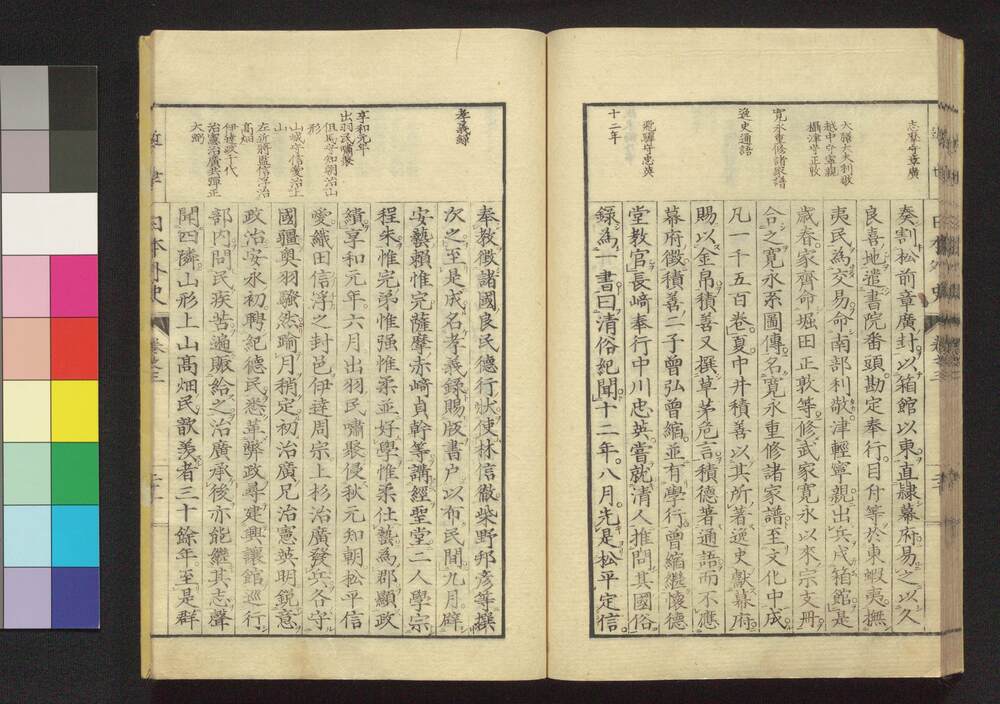 志摩守章廣
大膳大夫利敬
越中守寧親
攝津守正敦
寛永重修諸家譜
逸史通語
飛驒守忠英
十二年
奏割松前章廣封以箱館以東直隷幕府易之以久
良喜地遣書院番頭勘定奉行目付等於東蝦夷撫
夷民為交易命南部利敬津輕寧親出兵戍箱館是
歳春家齊命堀田正敦等修武家寛永以來宗支冊
合之寛永系圖傳名寛永重修諸家譜至文化中成
凡一千五百卷夏中井積善以其所著逸史獻幕府
賜以金帛積善又撰草茅危言積德著通語而不應
幕府徴積善二子曾弘曾縮並有學行曾縮繼懐德
堂教官長﨑奉行中川忠英嘗就清人推問其國俗
録為一書曰清俗紀聞十二年八月先是松平定信
孝義録
享和元年
出羽民嘯聚
但馬守知朝治山
形
山城守信愛治上
山
左近將監信浮治
髙畑
伊達政千代
治憲治廣共彈正
大弼
奉教徴諸國良民德行狀使林信徴柴野邦彦等撰
次之至是成名孝義録賜版書户以布民間九月辟
安藝賴惟完薩摩赤﨑貞幹等講經聖堂二人學宗
程朱惟完弟惟强惟柔並好學惟柔仕藝為郡顯政
績享和元年六月出羽民嘯聚侵秋元知朝松平信
愛織田信浮之封邑伊達周宗上杉治廣發兵各守
國疆奥羽騷然踰月稍定初治廣兄治憲英明鋭意
政治安永初聘紀德民悉革弊政尋建興讓館巡行
部内問民疾苦適賑給之治廣承後亦能繼其志聲
聞四隣山形上山髙畑民歆羡者三十餘年至是群
日本外史
卷之三